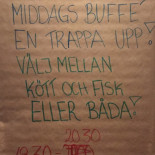 MIDDAGS BUFFÉ
EN TRAPPA UPP!
VÄLJ MELLAN
KÖTT OCH FISK
ELLER BÅDA!
20.30